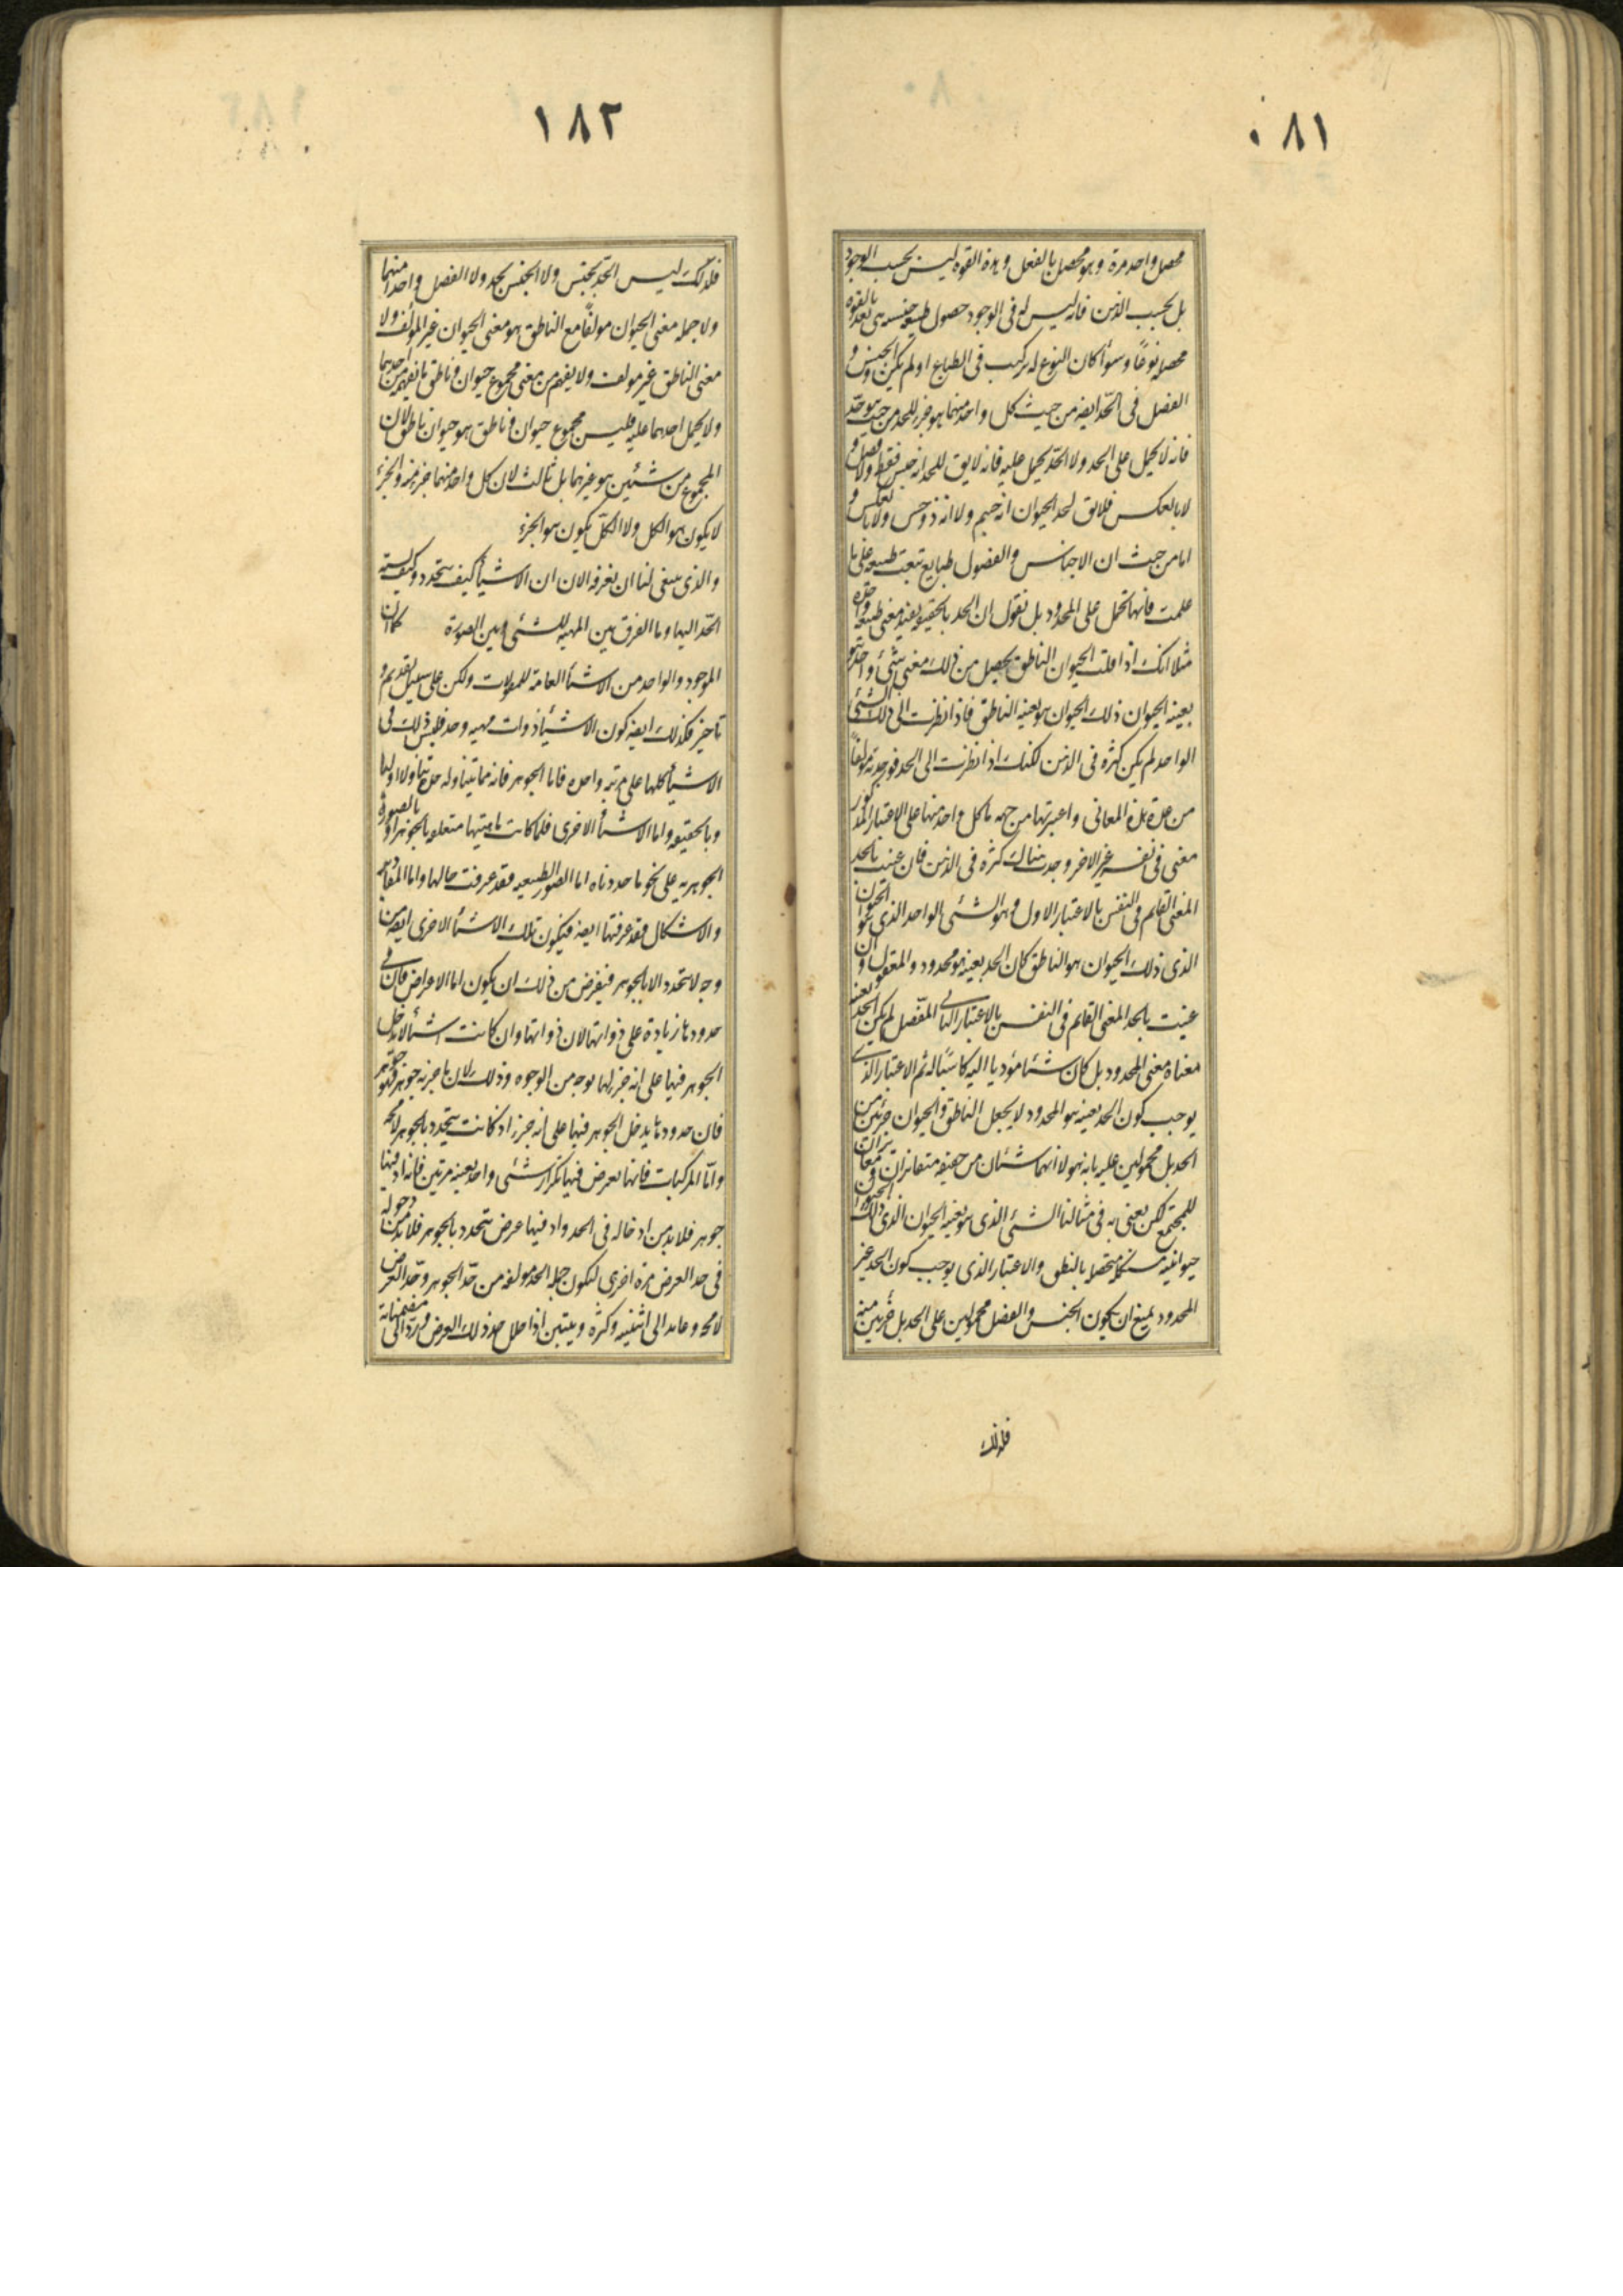 ٠٨١
محصل واحد مرة وهو محصل بالفعل وهذه القوة ليس بحسب الوجود
بل بحسب الذهن فانه ليس له فى الوجود حصول طبيعة جنسه هى بعد بالقوة
محصله نوعًا وسوأ كان النوع له تركيب فى الطباع او لم يكن والجنس و
الفصل فى الحّد ايضه من حيث كل واحد منهما هو جزء للحد من حيث هو حّد
فانه لا يحمل على الحد ولا الحّد يحمل عليه فانه لا يق للحد انه جنس فقط ولا فصل و
لا بالعكس فلا يق لحد الحيوان انه جسم ولا انه ذو حس ولا بالعكس و
اما من حيث ان الاجناس والفصول طبايع تبعت طبيعه على ما
علمت فانها تحمل على المحدود بل نقول ان الحد بالحقيقه يفيد معنى طبيعه واحده
مثلا انك اذا قلت الحيوان الناطق يحصل من ذلك معنى شئ واحد هو
بعينه الحيوان ذلك الحيوان هو بعينه الناطق فاذا نظرت الى ذلك الشئ
الواحد لم يكن كثره فى الذهن لكنك اذا نظرت الى الحد فوجدته مولفًا
من عدة هذه المعانى واعتبرتها من جهه ما كل واحد منها على الاعتبار المذكور
معنى فى نفسه غير الاخر وجدت هناك كثره فى الذهن فان عنيت بالحد
المعنى القايم فى النفس بالاعتبار الاول وهو الشئ الواحد الذى هو الحيوان
الذى ذلك الحيوان هو الناطق كان الحد بعينه هو محدود والمعقول وان
عنيت بالحد المعنى القايم فى النفس بالاعتبار الثانى المفّصل لم يكن الحد بعينه
معناه معنى المحدود بل كان شئا مؤديا اليه كاسبًا له ثم الاعتبار الذى
يوجب كون الحد بعينه هو المحدود لا يجعل الناطق والحيوان جزئين من
الحد بل محمولين عليه بانه هو لا انهما شئان من حقيقه متغايران ومغايران
للمجتمع لكن يعنى به فى مثالنا الشئ الذى هو بعينه الحيوان الذى ذلك الحيوان
حيوانيته مستكمله متحصله بالنطق والاعتبار الذى يوجب كون الحد غير
المحدود يمنع ان يكون الجنس والفصل محمولين على الحد بل جزئين منه
فلذلك
١٨٢
فلذلك ليس الحّد بجنس ولا الجنس بحد ولا الفصل واحدا منهما
ولا جمله معنى الحيوان مولفًا مع الناطق هو معنى الحيوان غير المؤلف ولا
معنى الناطق غير مولف ولا يفهم من معنى مجموع حيوان وناطق ما يفهم من احدهما
ولا يحمل احدهما عليه فليس مجموع حيوان وناطق هو حيوان ناطق لان
المجموع من شئين هو غيرهما بل ثالث لان كل واحد منهما جزء منه والجزء
لا يكون هو الكل ولا الكّل يكون هو الجزء
والذى ينبغى لنا ان نعرفه الان ان الاشيأ كيف تتحدد وكيف نسبته
الحّد اليها وما الفرق بين المهيه للشئ وبين الصورة كما ان
الموجود والواحد من الاشيأ العامه للمقولات ولكن على سبيل تقديم و
تاخير فكذلك ايضه كون الاشيأ ذوات مهيه وحد فليس ذلك فى
الاشيأ كلها على مرتبه واحده فاما الجوهر فانه مما يتناوله حد تناولا اوليا
وبالحقيقه واما الاشيأ الاخرى فلما كانت ماهيتها متعلقه بالجوهر او بالصورة
الجوهريه على نحو ما حددناه اما الصور الطبيعيه فقد عرفت حالها واما المقادير
والاشكال فقد عرفتها ايضه فيكون تلك الاشيأ الاخرى ايضه من
وجه لا تتحدد الا بالجوهر فيعرض من ذلك ان يكون اما الاعراض فان فى
حدودها زيادة على ذواتها لان ذواتها وان كانت اشيأ لا يدخل
الجوهر فيها على انه جزء لها بوجه من الوجوه وذلك لان ما جزءه جوهر فهو جوهر
فان حدودها يدخل الجوهر فيها على انه جزء اذ كانت تتحدد بالجوهر لا محه
وامّا المركبات فانها يعرض فيها تكرار شئى واحد بعينه مرتين فانه اذ فيها
جوهر فلا بد من ادخاله فى الحد واذ فيها عرض يتحدد بالجوهر فلا بد من دخوله
فى حد العرض مرة اخرى لتكون جمله الحد مولفه من حّد الجوهر وحّد العرض
لا محه وعايد الى اثنينيه وكثره ويتبين اذا حلل حد ذلك العرض ورّد الى مضمناته